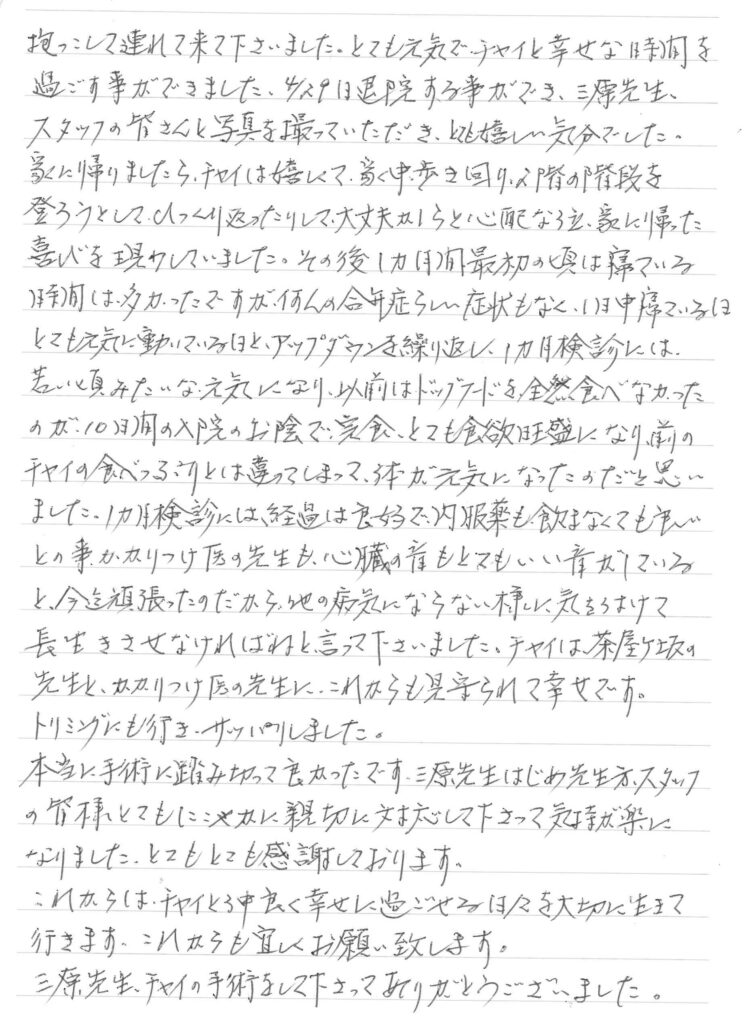 抱っこして連れて来て下さいました。とても元気で、チャイと幸せな時間を
過ごす事ができました。4/29日退院する事ができ、三原先生、
スタッフの皆さんと写真を撮っていただき、とても嬉しい気分でした。
家に帰りましたら、チャイは嬉しくて、家中歩き回り、2階の階段を
登ろうとして、ひっくり返ったりして、大丈夫かしらと心配な位、家に帰った
喜びを現わしていました。その後1カ月間最初の頃は寝ている
時間は、多かったですが、何んの合併症らしい症状もなく、1日中寝ている日
とても元気に動いている日と、アップダウンを繰り返し、1カ月検診には、
若い頃みたいな、元気になり、以前はドッグフードを、全然食べなかった
のが、10日間の入院のお陰で、完食、とても食欲旺盛になり、前の
チャイの食べっぷりとは違ってしまって、体が元気になったのだと思い
ました。1カ月検診には、経過は良好で、内服薬も飲まなくても良い
との事、かかりつけ医の先生も、心臓の音もとてもいい音がしている
と、今迄頑張ったのだから、他の病気にならない様に、気をつけて
長生きさせなければねと、言って下さいました。チャイは、茶屋ヶ坂の
先生と、かかりつけ医の先生に、これからも見守られて幸せです。
トリミングにも行き、サッパリしました。
本当に手術に踏み切って良かったです。三原先生はじめ先生方、スタッフ
の皆様、とてもにこやかに親切に対応して下さって気持が楽に
なりました。とてもとても感謝しております。
これからは、チャイと仲良く幸せに過ごせる日々を大切に生きて
行きます。これからも宜しくお願い致します。
三原先生、チャイの手術をして下さってありがとうございました。